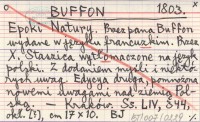 BUFFON 1803.
Epoki Natury. Przez pana Buffon
wydane w języku francuzkim. Przez
X. Staszica wytłomaczone na język
polski. Z dodaniem myśli i niektó-
rych uwag. Edycya druga, pomnożona
nowemi uwagami nad ziemią Pol-
ską. — Kraków. Ss. LIV, 344,
okl. [1], cm 17 × 10. BJ